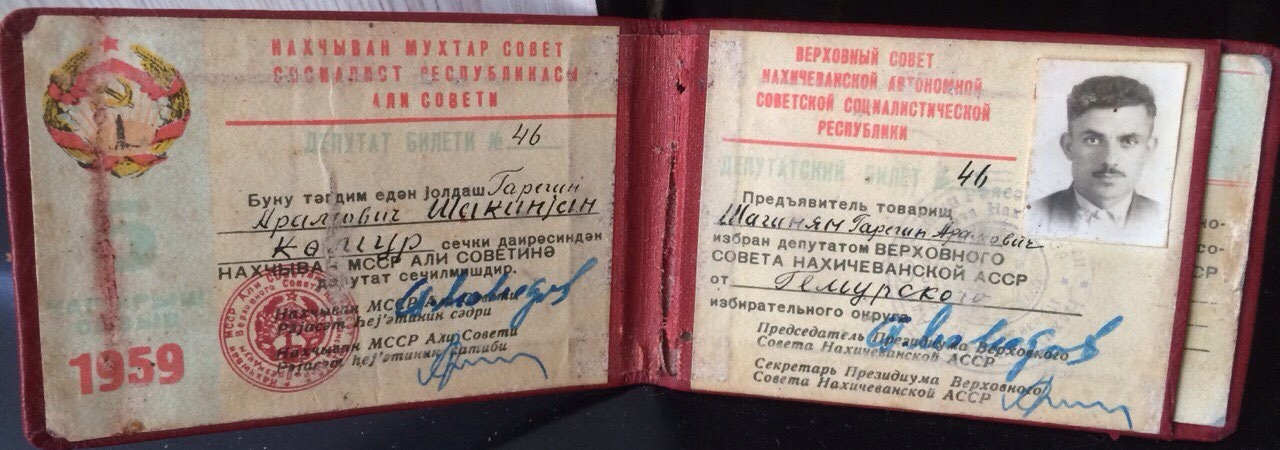 НАХЧЫВАН МУХТАР СОВЕТ
СОСИАЛИСТ РЕСПУБЛИКАСЫ
АЛИ СОВЕТИ
ДЕПУТАТ БИЛЕТИ № 46
Буну тәгдим едән јолдаш Гарегин
Арамович Шаһинјан
сечки даирәсиндән
НАХЧЫВАН МССР АЛИ СОВЕТИНӘ
депутат сечилмишдир.
Нахчыван МССР Али Совети
Рәјасәт һеј'әтинин сәдри
Нахчыван МССР Али Совети
Рәјасәт һеј'әтинин катиби
1959
ВЕРХОВНЫЙ СОВЕТ
НАХИЧЕВАНСКОЙ АВТОНОМНОЙ
СОВЕТСКОЙ СОЦИАЛИСТИЧЕСКОЙ
РЕСПУБЛИКИ
ДЕПУТАТСКИЙ БИЛЕТ № 46
Предъявитель товарищ
Шагинян Гарегин Арамович
избран депутатом ВЕРХОВНОГО
СОВЕТА НАХИЧЕВАНСКОЙ АССР
от Гемурского
избирательного округа
Председатель Президиума Верховного
Совета Нахичеванской АССР
Секретарь Президиума Верховного
Совета Нахичеванской АССР